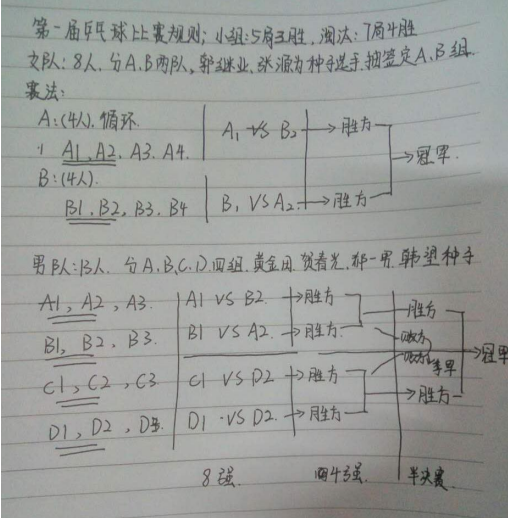 第一届乒乓球比赛规则；小组:5局3胜，淘汰：7局4胜
女队：8人，分A.B两队，郭继业、张源为种子选手.抽签定A、B组.
赛法：
A:(4人).循环.
A1、A2、A3、A4.
B:(4人).
B1、B2、B3、B4
A1 VS B2 → 胜方
B1 VS A2 → 胜方
→ 冠军.
男队:13人. 分A.B.C.D四组.黄金田.贺春光.郝一男.韩望种子
A1, A2, A3. A1 VS B2 → 胜方
B1, B2, B3. B1 VS A2. → 胜方.
C1, C2, C3 C1 VS D2 → 胜方
D1, D2, D3. D1 VS D2. → 胜方
胜方
败方
败方
季军
→ 胜方
→ 冠军
8强. 4强. 半决赛.